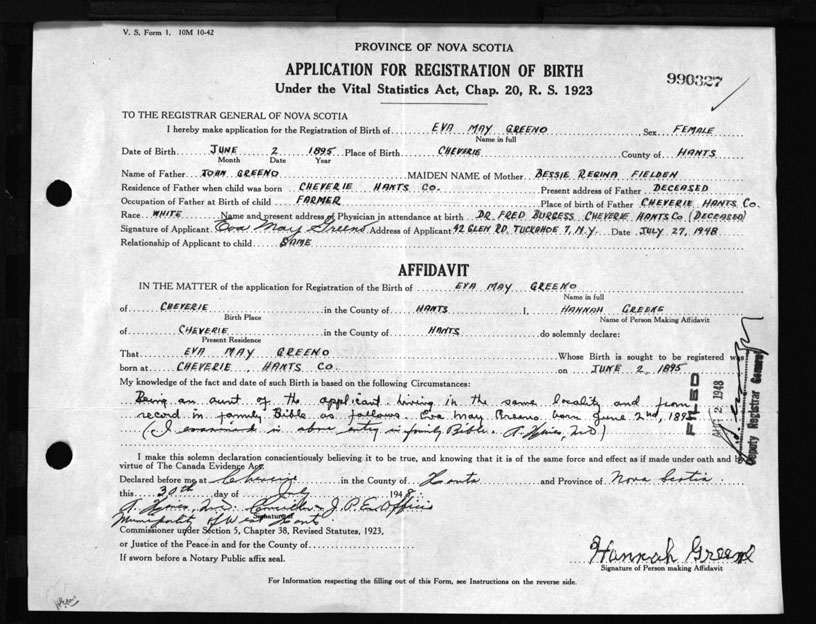 V. S. Form 1. 10M 10-42
PROVINCE OF NOVA SCOTIA
APPLICATION FOR REGISTRATION OF BIRTH
990327
Under the Vital Statistics Act, Chap. 20, R. S. 1923
TO THE REGISTRAR GENERAL OF NOVA SCOTIA
I hereby make application for the Registration of Birth of EVA MAY GREENO, Sex FEMALE
Name in full
Date of Birth JUNE 2 1895 Place of Birth CHEVERIE County of HANTS
Month Date Year
Name of Father JOHN GREENO MAIDEN NAME of Mother BESSIE REGINA FIELDEN
Residence of Father when child was born CHEVERIE HANTS CO. Present address of Father DECEASED
Occupation of Father at Birth of child FARMER Place of birth of Father CHEVERIE HANTS CO.
Race WHITE Name and present address of Physician in attendance at birth DR. FRED BURGESS CHEVERIE HANTS CO (DECEASED)
Signature of Applicant Eva May Greeno Address of Applicant 42 GLEN RD, TUCKAHOE 7, N.Y. Date JULY 27, 1948
Relationship of Applicant to child SAME
AFFIDAVIT
IN THE MATTER of the application for Registration of the Birth of EVA MAY GREENO
Name in full
of CHEVERIE in the County of HANTS I, HANNAH GREENE
Birth Place Name of Person Making Affidavit
of CHEVERIE in the County of HANTS do solemnly declare:
Present Residence
That EVA MAY GREENO Whose Birth is sought to be registered was
born at CHEVERIE, HANTS CO. on JUNE 2, 1895
My knowledge of the fact and date of such Birth is based on the following Circumstances:
Being an aunt of the applicant living in the same locality and from
record in family Bible as follows. Eva May Greeno born June 2nd, 1895
(I examined is above entry in family Bible.
FILED
2 1948
Deputy Registrar General
I make this solemn declaration conscientiously believing it to be true, and knowing that it is of the same force and effect as if made under oath and by
virtue of The Canada Evidence Act.
Declared before me at Cheverie in the County of Hants and Province of Nova Scotia
this 30th day of July 1948
Councillor J. P. Ex Officio
Signature of
Municipality of West Hants
Commissioner under Section 5, Chapter 38, Revised Statutes, 1923,
or Justice of the Peace in and for the County of
Hannah Greene
If sworn before a Notary Public affix seal.
Signature of Person making Affidavit
For Information respecting the filling out of this Form, see Instructions on the reverse side.